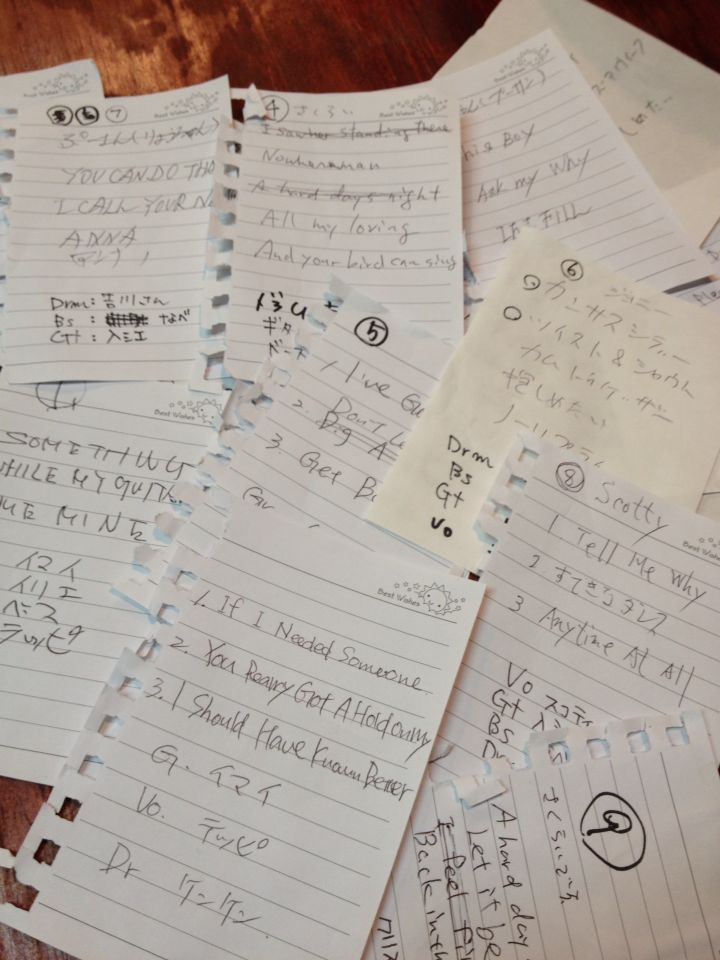 Best Wishes
Best Wishes
⑥ 7
ぷーさん(りょう
YOU CAN DO THA
I CALL YOUR N
ANNA
アンナ
Drm: 吉川さん
Bs : なべ
Gt : 入江
Best Wishes
④ さくらい
I saw her standing there
Nowhereman
A hard days night
All my loving
And your bird can sing
ギタ
ベー
his Boy
Ask my Why
If I FELL
⑤
1, I've Gu
2. Don't
Big A
3. Get B
⑥ ジョニー
カンサスシティー
ツイスト&シャウト
抱しめたい
Drm
Bs
Gt
Vo
Best Wishes
SOMETHING
WHILE MY GUITA
ME MINE
イマイ
イリエ
ベース
テッピ
⑧ Scotty
Best Wis
1. Tell Me Why
2 すてきなダンス
3 Anytime At All
Vo スコティ
Gt 入
Bs
Dr
Best Wishes
1. If I Needed Someone.
2. You Rearry Got A Hold on my
3. I Should Have Known Better
G. イマイ
Vo. テッピ
Dr ケンケン
⑨
A hard day
Let it be
I Feel fi
Back in th